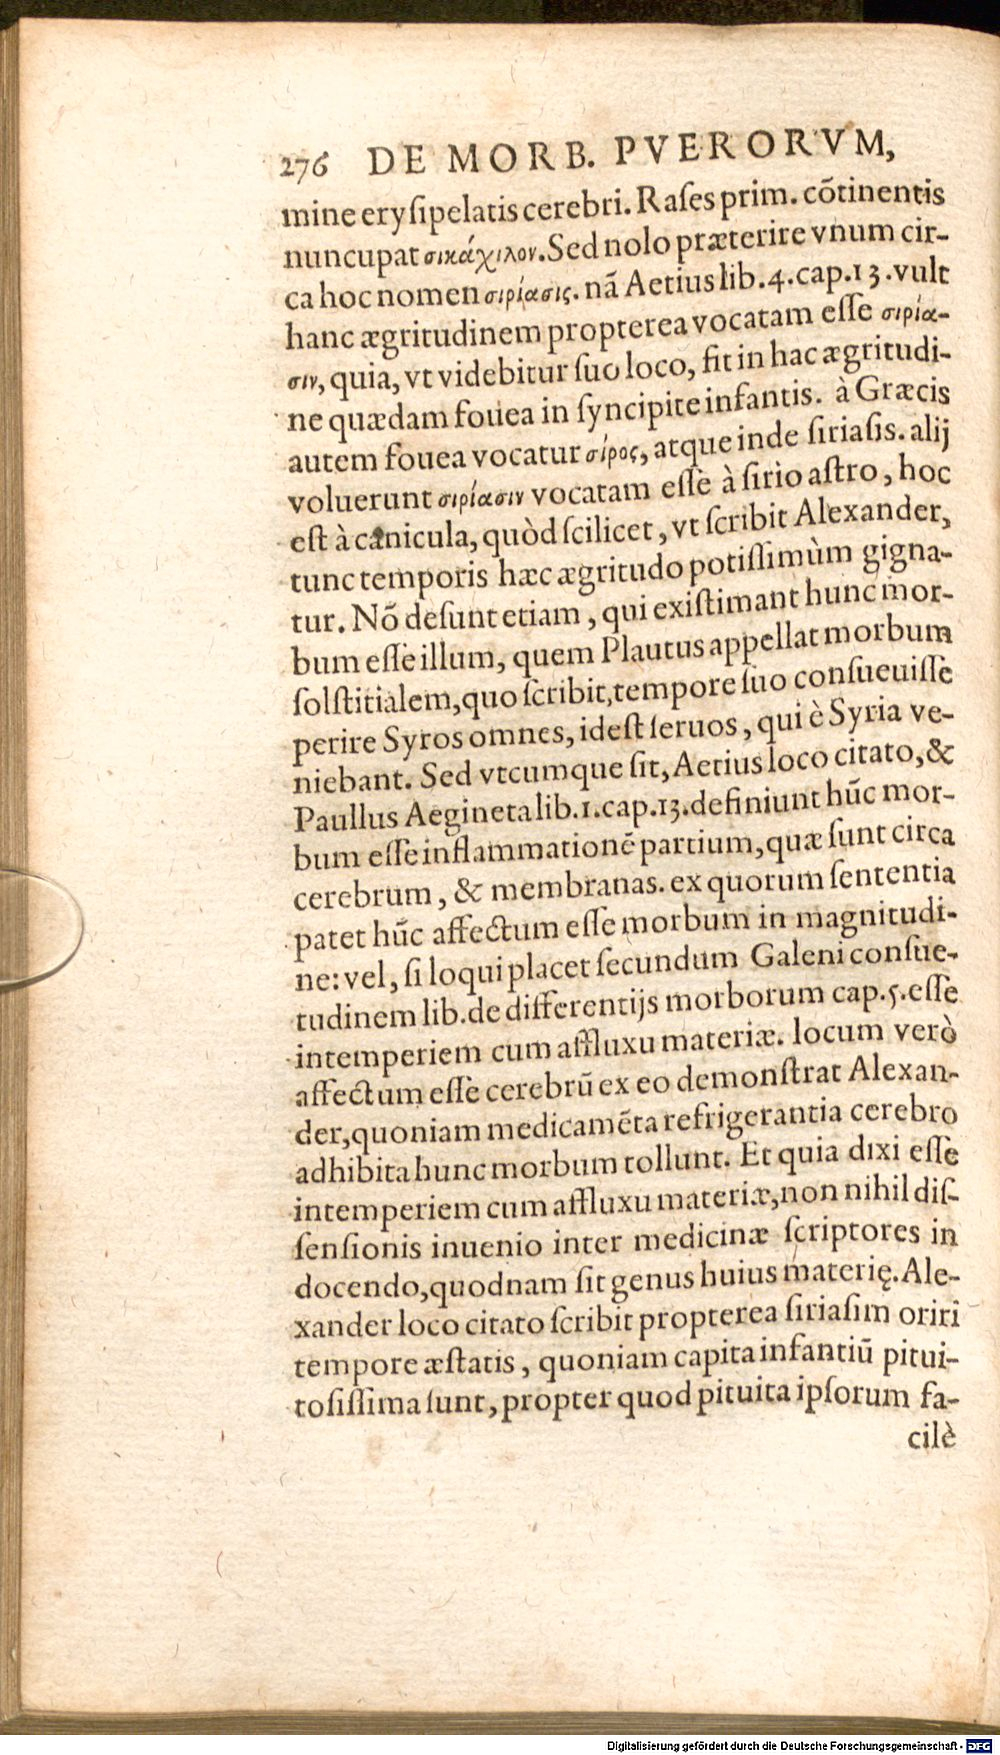 276 DE MORB. PVERORVM,
mine erysipelatis cerebri. Rases prim. cõtinentis
nuncupat σικάχιλον. Sed nolo præterire vnum cir-
ca hoc nomen σιρίασις. nã Aetius lib. 4. cap. 13. vult
hanc ægritudinem propterea vocatam esse σιρία-
σιν, quia, vt videbitur suo loco, fit in hac ægritudi-
ne quædam fouea in syncipite infantis. à Græcis
autem fouea vocatur σίρος, atque inde siriasis. alij
voluerunt σιρίασιν vocatam esse à sirio astro, hoc
est à canicula, quòd scilicet, vt scribit Alexander,
tunc temporis hæc ægritudo potissimùm gigna-
tur. Nõ desunt etiam, qui existimant hunc mor-
bum esse illum, quem Plautus appellat morbum
solstitialem, quo scribit, tempore suo consueuisse
perire Syros omnes, idest seruos, qui è Syria ve-
niebant. Sed vtcumque sit, Aetius loco citato, &
Paullus Aegineta lib. 1. cap. 13. definiunt hũc mor-
bum esse inflammationẽ partium, quæ sunt circa
cerebrum, & membranas. ex quorum sententia
patet hũc affectum esse morbum in magnitudi-
ne: vel, si loqui placet secundum Galeni consue-
tudinem lib. de differentijs morborum cap. 5. esse
intemperiem cum affluxu materiæ. locum verò
affectum esse cerebrũ ex eo demonstrat Alexan-
der, quoniam medicamẽta refrigerantia cerebro
adhibita hunc morbum tollunt. Et quia dixi esse
intemperiem cum affluxu materiæ, non nihil dis-
sensionis inuenio inter medicinæ scriptores in
docendo, quodnam sit genus huius materię. Ale-
xander loco citato scribit propterea siriasim oriri
tempore æstatis, quoniam capita infantiũ pitui-
tosissima sunt, propter quod pituita ipsorum fa-
cilè
Digitalisierung gefördert durch die Deutsche Forschungsgemeinschaft - DFG